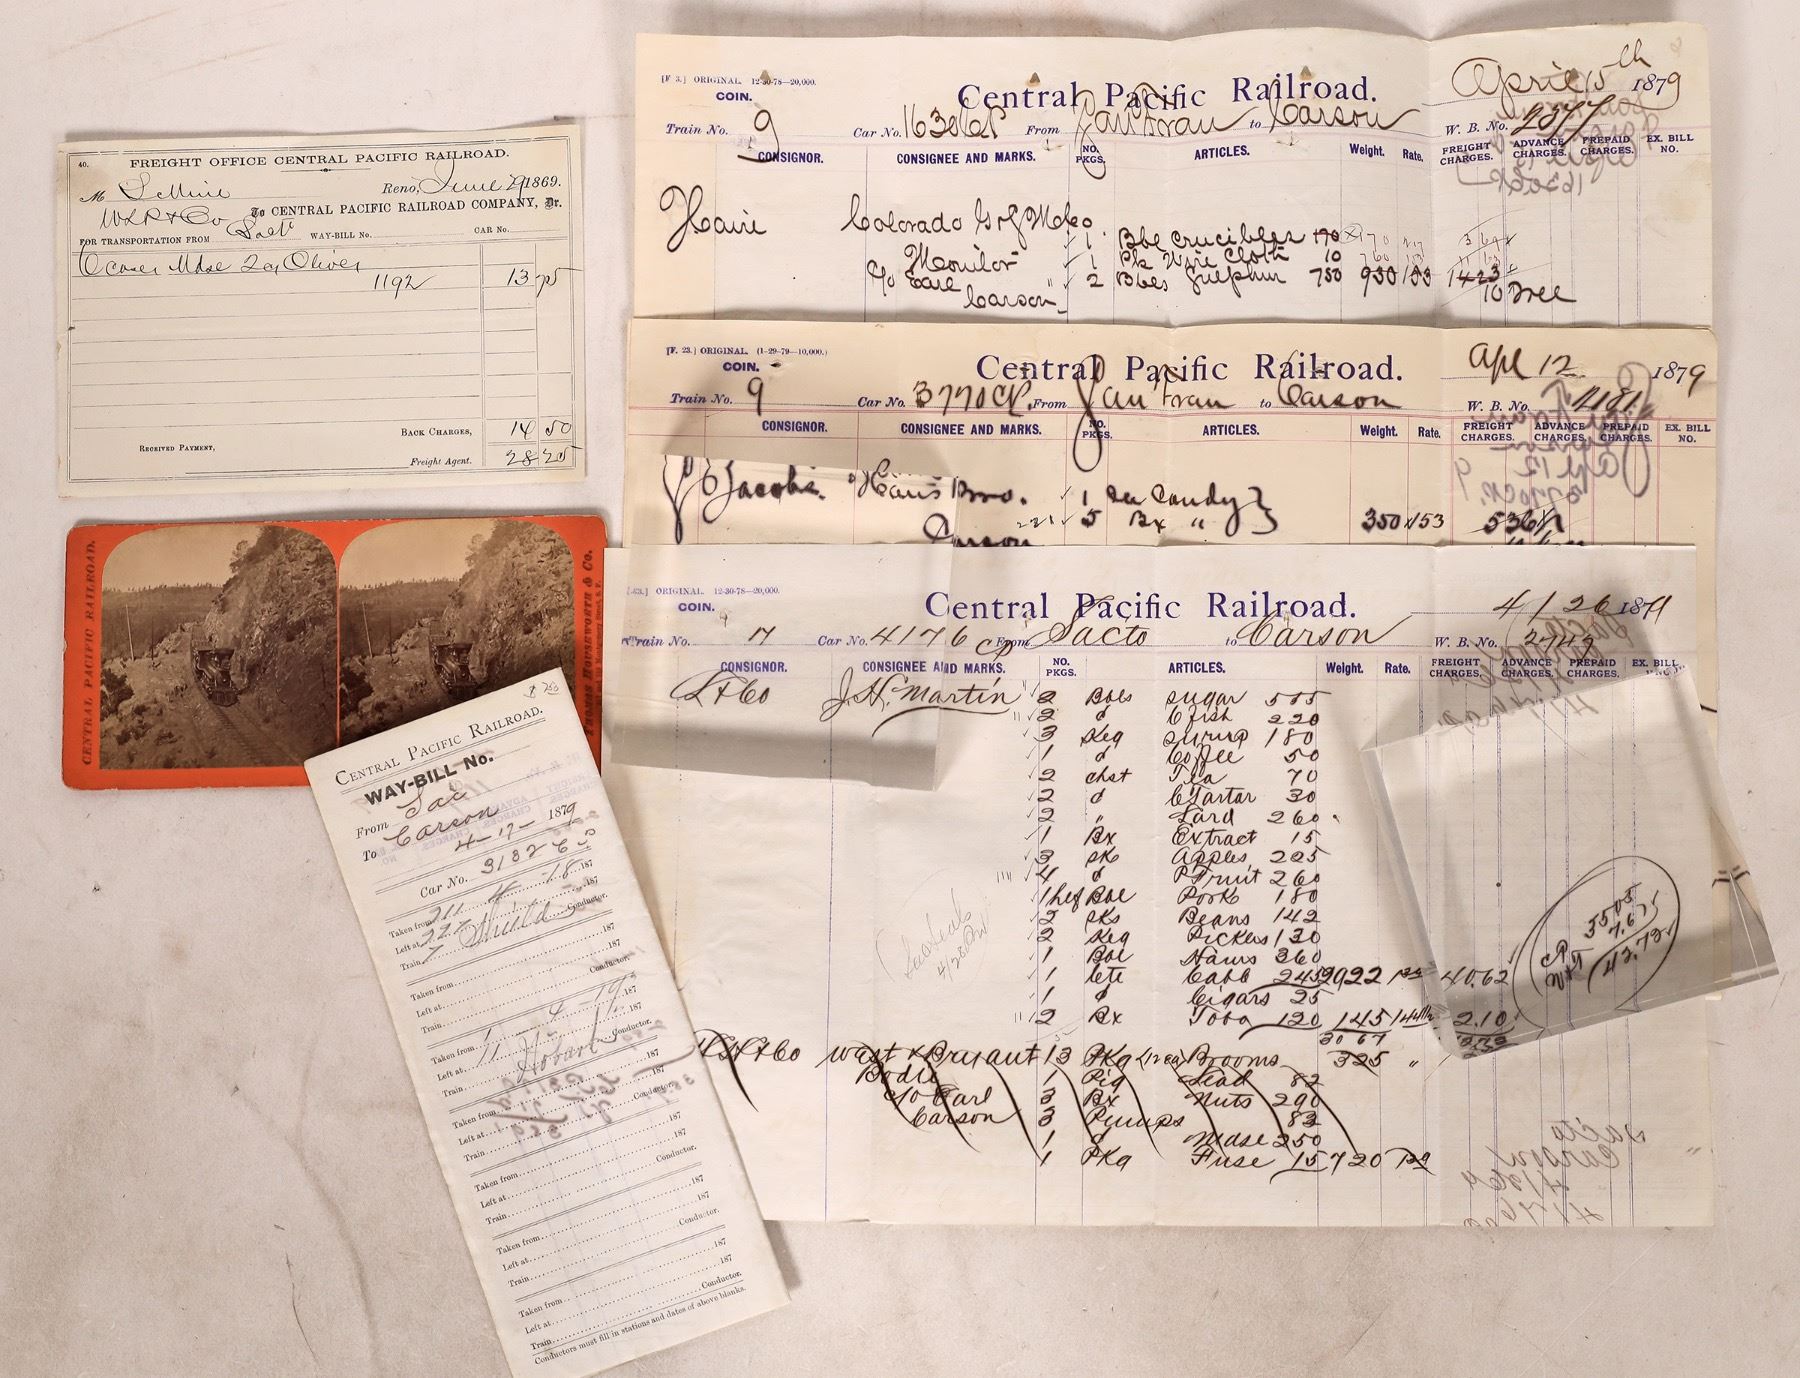 40.
FREIGHT OFFICE CENTRAL PACIFIC RAILROAD.
Reno, June 29 1869.
M
W L R & Co To CENTRAL PACIFIC RAILROAD COMPANY, Dr.
FOR TRANSPORTATION FROM Sact WAY-BILL No. CAR No.
6 cases Mdse 2 cs Olives
1192 13 75
BACK CHARGES, 14 50
RECEIVED PAYMENT,
Freight Agent. 28 25
CENTRAL PACIFIC RAILROAD.
THOMAS HOUSEWORTH & Co.
CENTRAL PACIFIC RAILROAD.
WAY-BILL No.
From Sac
To Carson
4-17-1879
Car No. 3182
Taken from 211 4-18 187
Left at 222
Train 7 Conductor.
Taken from 187
Left at
Train Conductor.
Taken from 1 4-19 187
Left at 11
Train Hobart Conductor.
Taken from 187
Left at
Train Conductor.
Taken from 187
Left at 187
Train Conductor.
Taken from 187
Left at 187
Train Conductor.
Taken from 187
Left at 187
Train Conductor.
Conductors must fill in stations and dates of above blanks.
[F 3.] ORIGINAL. 12-30-78—20,000.
COIN.
Central Pacific Railroad.
April 15th 1879
Train No. 9 Car No. 1630 CP From San Fran to Carson W. B. No. 2877
CONSIGNOR. CONSIGNEE AND MARKS. NO. PKGS. ARTICLES. Weight. Rate. FREIGHT CHARGES. ADVANCE CHARGES. PREPAID CHARGES. EX. BILL NO.
Haire Colorado
1 Bbl Crucibles 170
Monitor 1 Pk Wire Cloth 10
c/o Earl 2 Bbls Sulphur 750 930 153 1423
Carson 10 Free
[F. 23.] ORIGINAL. (1-29-79—10,000.)
COIN.
Central Pacific Railroad.
Apl 12 1879
Train No. 9 Car No. 3770 CP. From San Fran to Carson W. B. No. 2181
CONSIGNOR. CONSIGNEE AND MARKS. NO. PKGS. ARTICLES. Weight. Rate. FREIGHT CHARGES. ADVANCE CHARGES. PREPAID CHARGES. EX. BILL NO.
Jacobs. Bros. 1 Candy
Carson 5 Bx " 350 153 536
ORIGINAL. 12-30-78—20,000.
COIN.
Central Pacific Railroad.
4/26 1879
Train No. 17 Car No. 4176 CP From Sacto to Carson W. B. No. 2747
CONSIGNOR. CONSIGNEE AND MARKS. NO. PKGS. ARTICLES. Weight. Rate. FREIGHT CHARGES. ADVANCE CHARGES. PREPAID CHARGES. EX. BILL NO.
L & Co J. H. Martin 2 Bbls Sugar 505
2 d C Fish 220
3 Keg Syrup 180
1 d Coffee 50
2 Chst Tea 70
2 d C Tartar 30
2 " Lard 260
1 Bx Extract 15
3 sk Apples 225
4 d Fruit 260
1 hlf Bbl Pork 180
2 sks Beans 142
2 Keg Pickles 130
1 Bbl Hams 360
1 Cte Cabb 245 2922 40.62
1 d Cigars 25
2 Bx Toba 120 145 2.10
3067
H & Co West & Bryant 13 Pkg (12 ea) Brooms 325 "
Bodie 1 Pig Lead 82
c/o Earl 3 Bx Nuts 290
Carson 3 Pumps 83
1 d Mdse 250
1 Pkg Fuse 15 720
4/28
CP 35.05
7.67
42.72